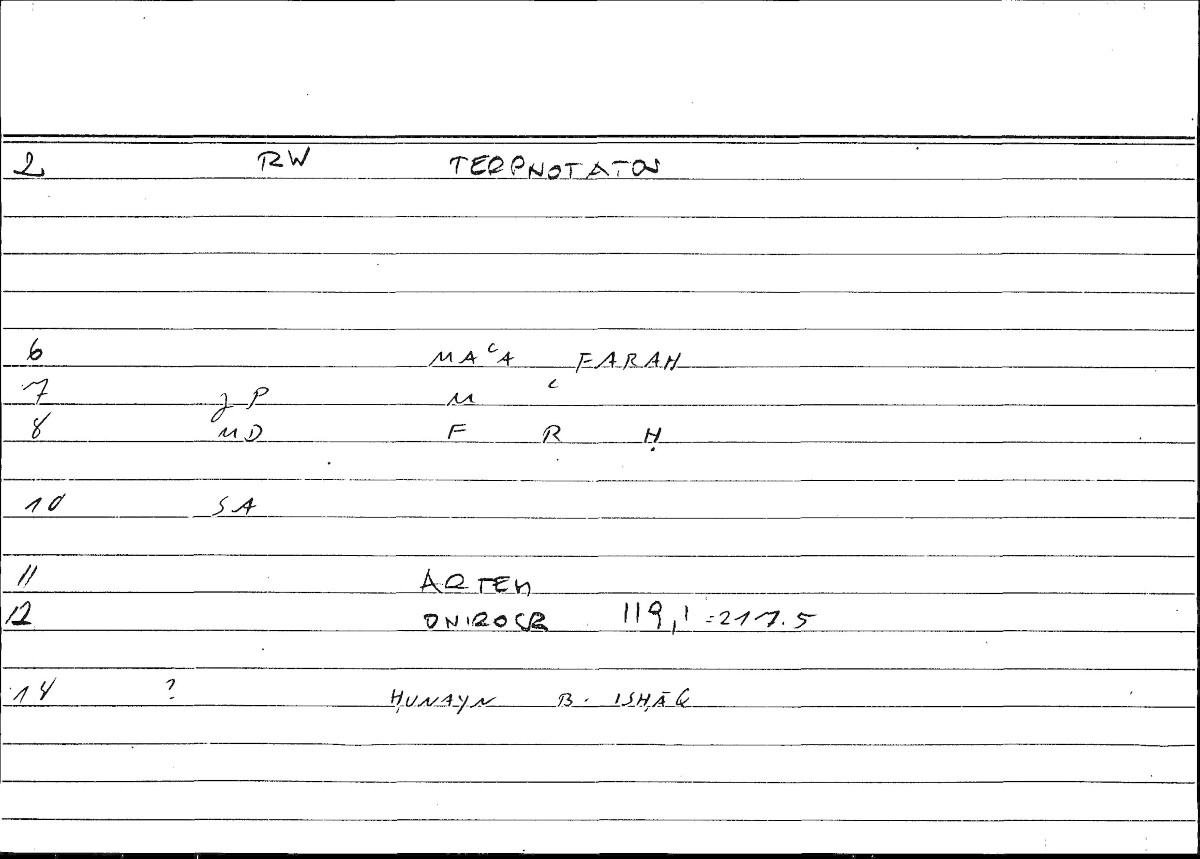 2 RW TERPNOTATOS
6 MAʿA FARAḤ
7 JP M ʿ
8 MD F R Ḥ
10 SA
11 ARTEM
12 ONIROCR 119,1 = 217.5
14 ? ḤUNAYN B. ISḤĀQ